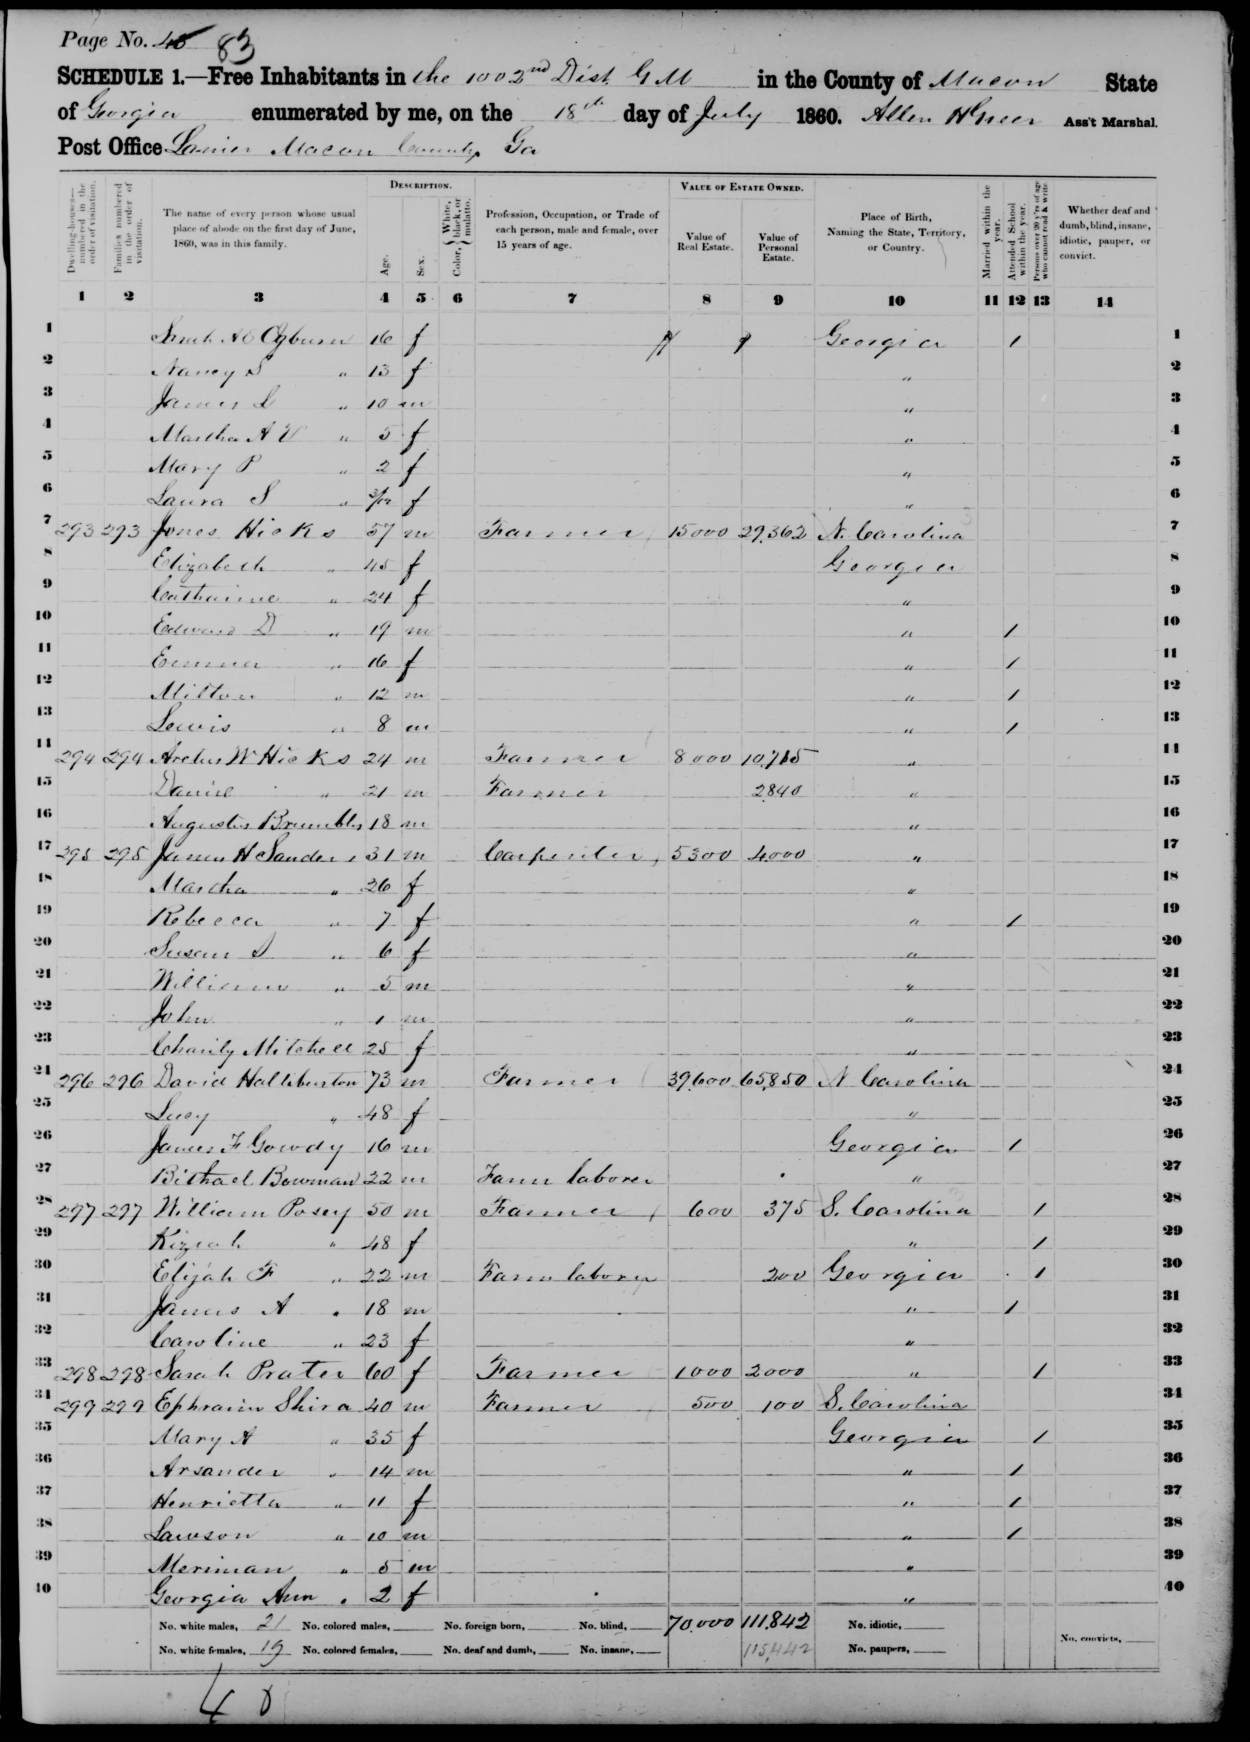 Page No. 45 83
SCHEDULE 1.—Free Inhabitants in the 1002nd Dist G M in the County of Macon State
of Georgia enumerated by me, on the 18th day of July 1860. Allen H Greer Ass't Marshal.
Post Office Lanier Macon County Ga
DESCRIPTION. VALUE OF ESTATE OWNED.
Dwelling-houses—numbered in the order of visitation.
Families numbered in the order of visitation.
The name of every person whose usual place of abode on the first day of June, 1860, was in this family.
Age.
Sex.
Color, White, black, or mulatto.
Profession, Occupation, or Trade of each person, male and female, over 15 years of age.
Value of Real Estate.
Value of Personal Estate.
Place of Birth, Naming the State, Territory, or Country.
Married within the year.
Attended School within the year.
Persons over 20 y'rs of age who cannot read & write
Whether deaf and dumb, blind, insane, idiotic, pauper, or convict.
1 2 3 4 5 6 7 8 9 10 11 12 13 14
1 Sarah A E Ogburn 16 f Georgia 1 1
2 Nancy S " 13 f " 2
3 James L " 10 m " 3
4 Martha A V " 5 f " 4
5 Mary P " 2 f " 5
6 Laura S " 3/12 f " 6
7 293 293 Jones Hicks 57 m Farmer 15000 29,362 N. Carolina 7
8 Elizabeth " 45 f Georgia 8
9 Catharine " 24 f " 9
10 Edward D " 19 m " 1 10
11 Emma " 16 f " 1 11
12 Milton " 12 m " 1 12
13 Lewis " 8 m " 1 13
14 294 294 W Hicks 24 m Farmer 8000 10,715 " 14
15 " 21 m Farmer 2840 " 15
16 Augustus 18 m " 16
17 295 295 James H Sanders 31 m Carpenter 5300 4000 " 17
18 Martha " 26 f " 18
19 Rebecca " 7 f " 1 19
20 Susan " 6 f " 20
21 William " 5 m " 21
22 John " 1 m " 22
23 Charity Mitchell 25 f " 23
24 296 296 David Halliburton 73 m Farmer 39,600 65,850 N Carolina 24
25 Lucy " 48 f " 25
26 James F Gowdy 16 m Georgia 1 26
27 Bithael Bowman 22 m Farm laborer " 27
28 297 297 William Posey 50 m Farmer 600 375 S. Carolina 1 28
29 Kiziah " 48 f " 1 29
30 Elijah F " 22 m Farm laborer 200 Georgia 1 30
31 James A " 18 m " 1 31
32 Caroline " 23 f " 32
33 298 298 Sarah Prater 60 f Farmer 1000 2000 " 1 33
34 299 299 Ephraim Shira 40 m Farmer 500 100 S. Carolina 34
35 Mary A " 35 f Georgia 1 35
36 Arsander " 14 m " 1 36
37 Henrietta " 11 f " 1 37
38 Lawson " 10 m " 1 38
39 Meriman " 5 m " 39
40 Georgia Ann " 2 f " 40
No. white males, 21 No. colored males, No. foreign born, No. blind, 70,000 111,842 No. idiotic,
No. white females, 19 No. colored females, No. deaf and dumb, No. insane, 115,442 No. paupers, No. convicts,
40